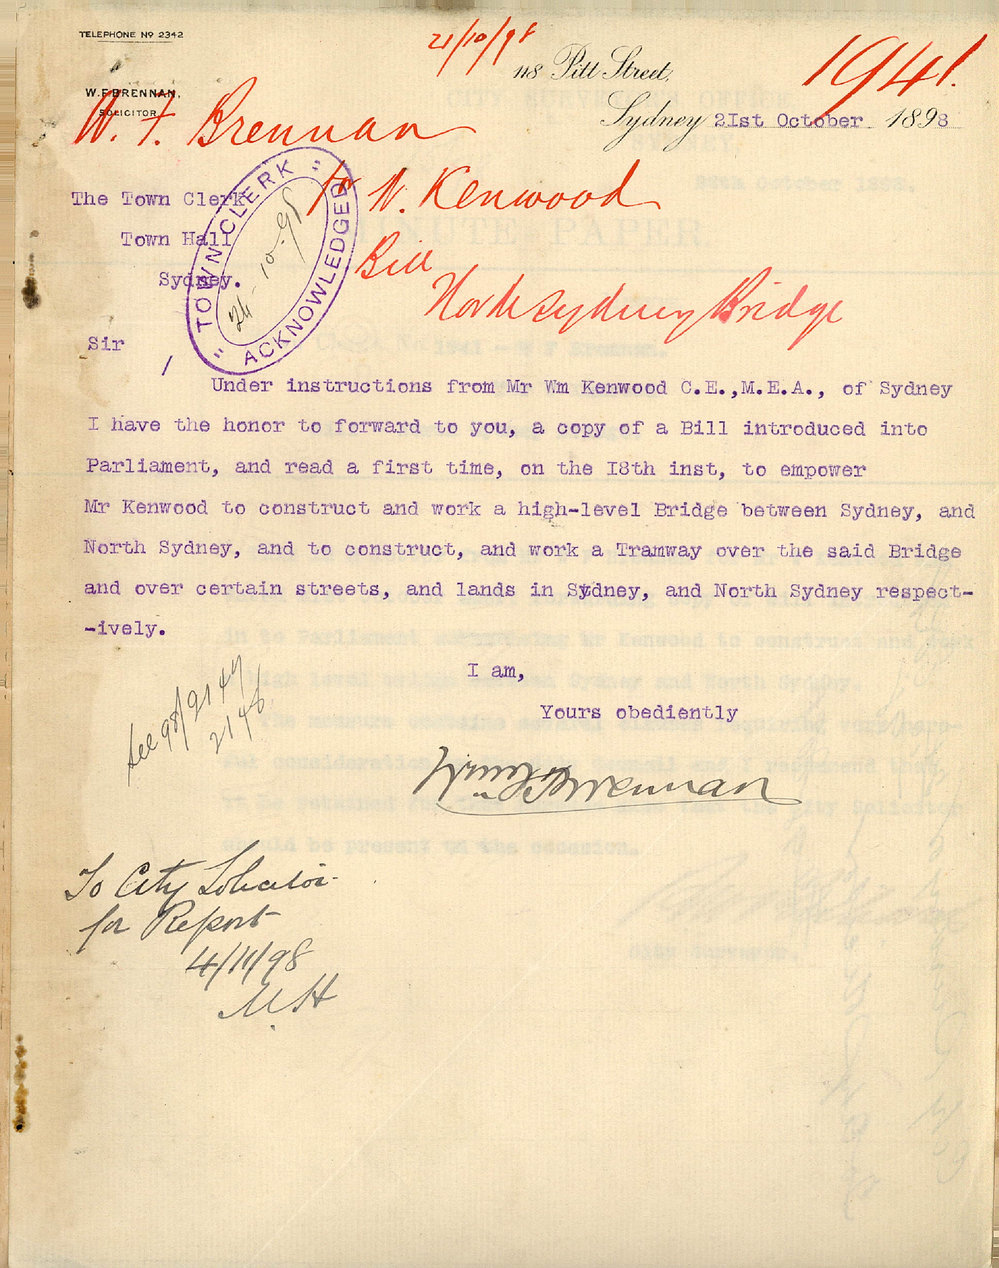 TELEPHONE Nº 2342
21/10/98
118 Pitt Street,
1941.
W.F. BRENNAN,
SOLICITOR
Sydney 2Ist October 1898
W. F. Brennan
for W. Kenwood
Bill
North Sydney Bridge
The Town Clerk
Town Hall
Sydney.
"TOWN CLERK"
24-10-98
ACKNOWLEDGED
Sir
Under instructions from Mr Wm Kenwood C.E.,M.E.A., of Sydney
I have the honor to forward to you, a copy of a Bill introduced into
Parliament, and read a first time, on the I8th inst, to empower
Mr Kenwood to construct and work a high-level Bridge between Sydney, and
North Sydney, and to construct, and work a Tramway over the said Bridge
and over certain streets, and lands in Sydney, and North Sydney respect-
-ively.
I am,
Yours obediently
Wm F Brennan
See 98/2147
2146
To City Solicitor
for Report
4/11/98
MINUTE PAPER